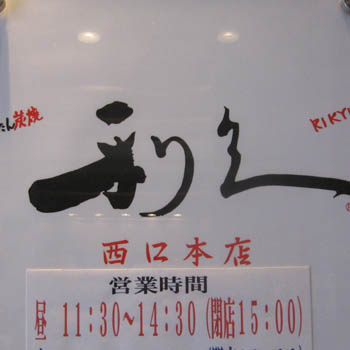 たん炭焼
利久
RIKYU
西口本店
営業時間
昼 11:30~14:30(閉店15:00)